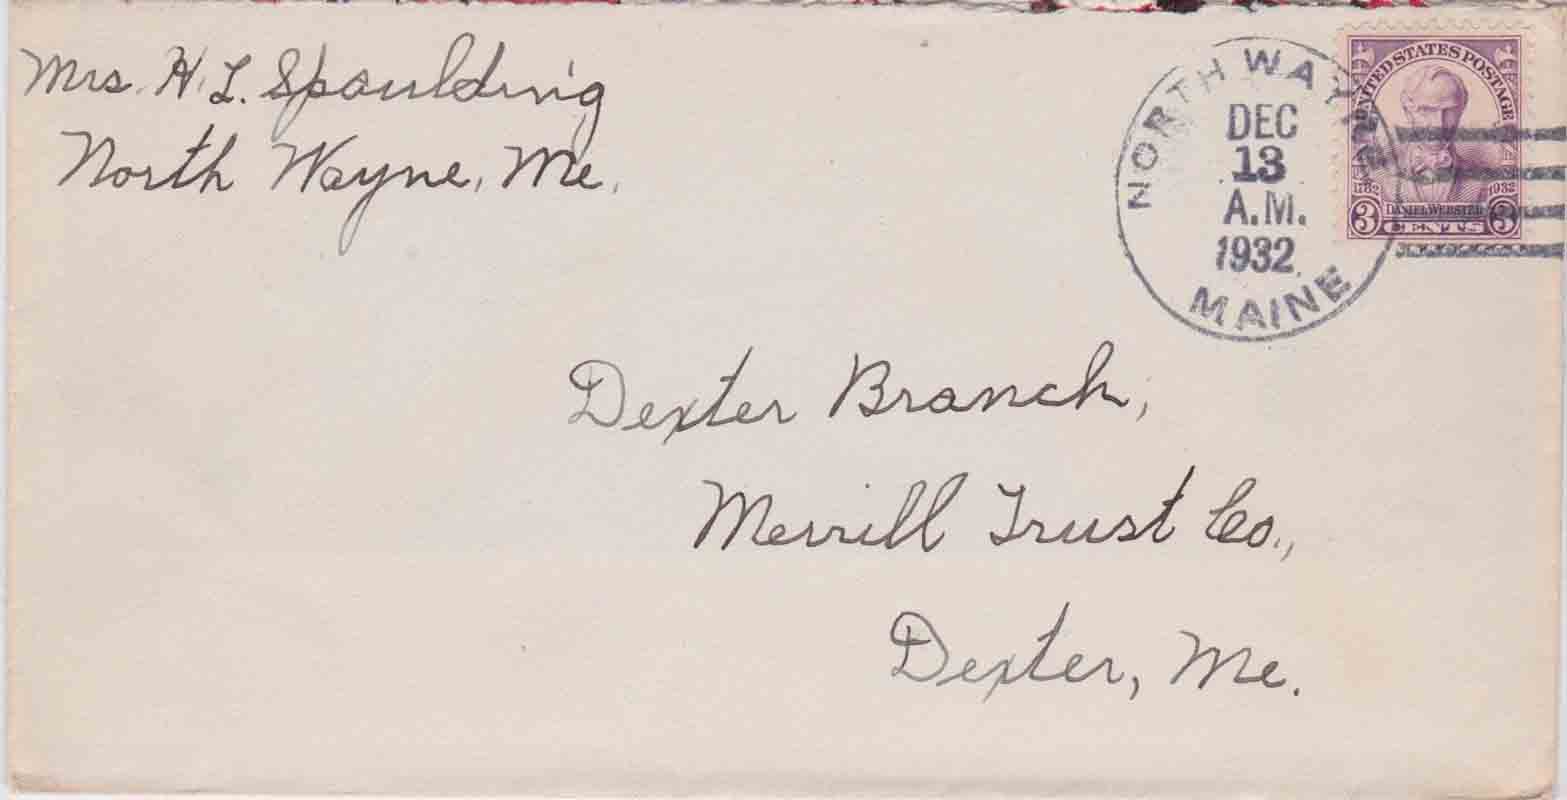 Mrs. H. L. Spaulding
North Wayne, Me.
NORTH WAYNE
DEC
13
A.M.
1932
MAINE
UNITED STATES POSTAGE
1782 1932
DANIEL WEBSTER
3 CENTS 3
Dexter Branch,
Merrill Trust Co.,
Dexter, Me.